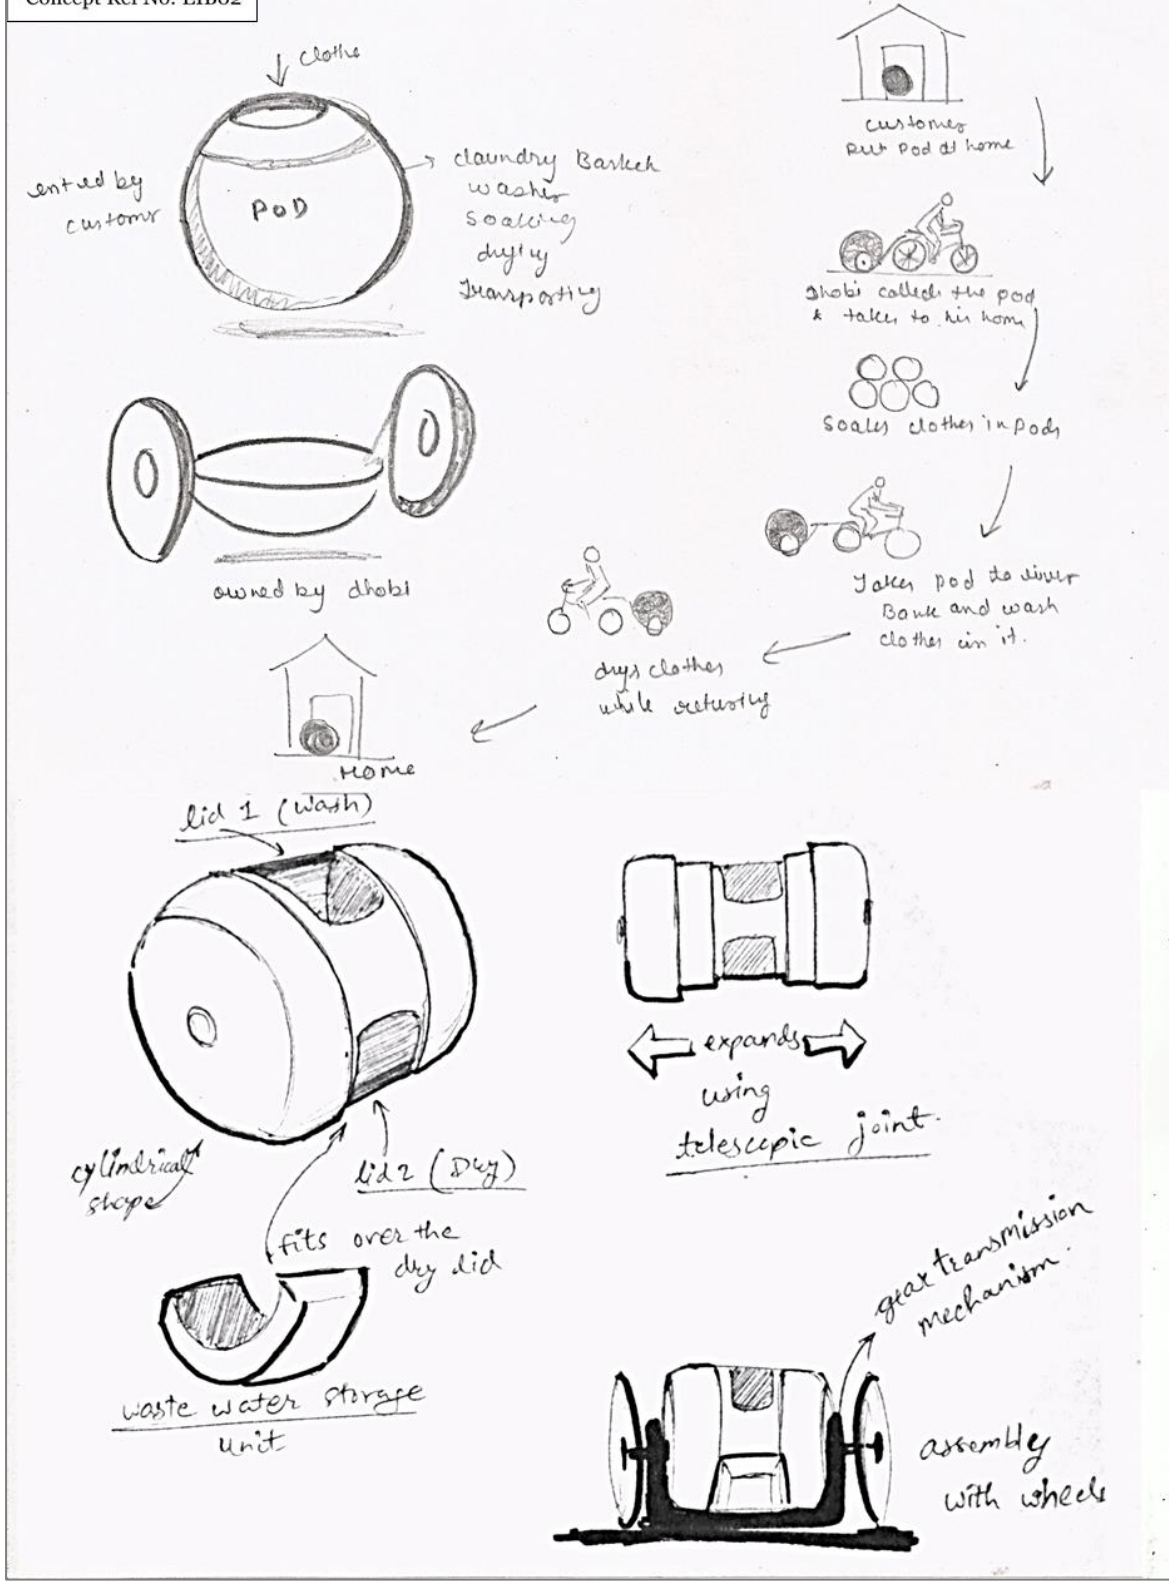 Concept Ref No: LIB02
clothe
ented by
customr
POD
claundry Basket
washer
soaking
drying
Transporting
customer
put Pod at home
Dhobi collects the pod
& takes to his home
Soaks clothes in pods
Takes pod to river
Bank and wash
clothes in it.
drys clothes
while returing
Home
owned by dhobi
lid 1 (wash)
cylindrical
shape
lid 2 (Dry)
fits over the
dry lid
waste water storage
unit
expands
using
telescopic joint.
gear transmission
mechanism.
assembly
with wheels